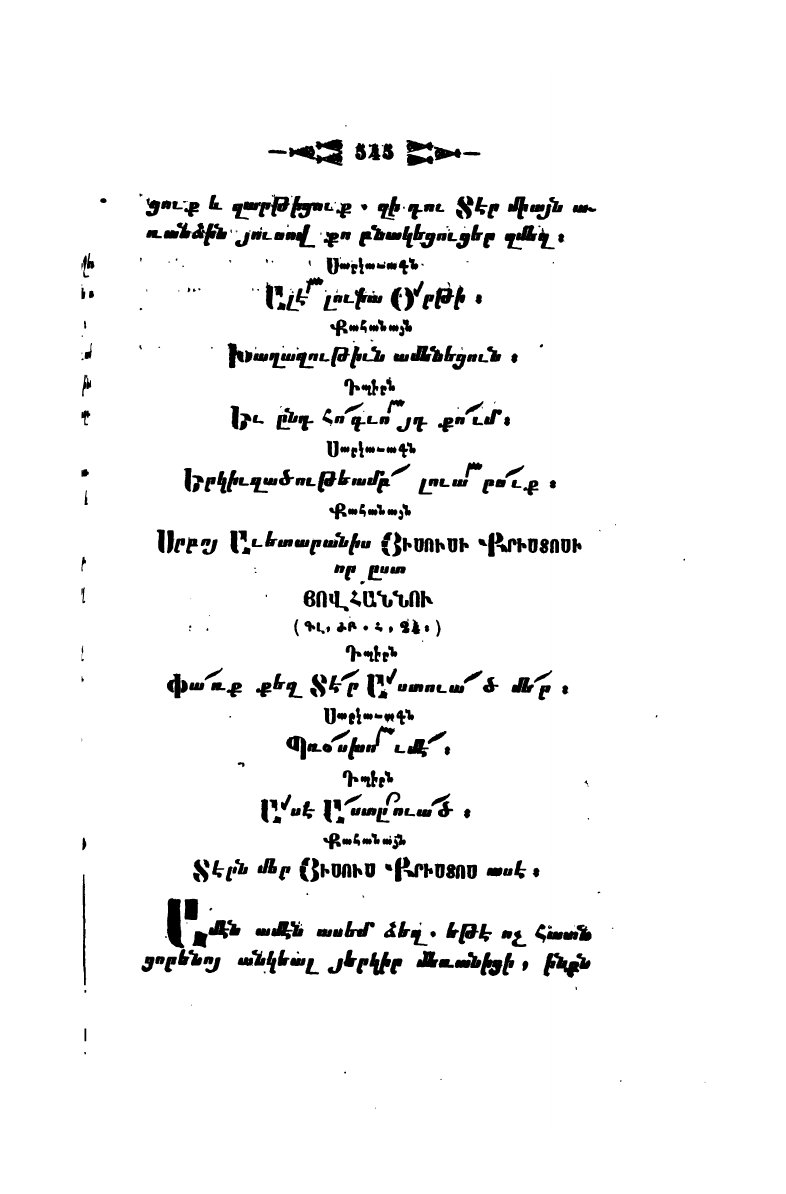 545
ցուք և զարթիցուք. զի դու Տէր միայն ա֊
ռանձին յուսով քո բնակեցուցեր զմեզ։
Սարկաւագն
Ալէլուիա Օրթի։
Քահանայն
Խաղաղութիւն ամենեցուն։
Դպիրն
Եւ ընդ հոգւոյդ քում։
Սարկաւագն
Երկիւղածութեամբ լուարո՛ւք։
Քահանայն
Սրբոյ Աւետարանիս ՅԻՍՈՒՍԻ ՔՐԻՍՏՈՍԻ
որ ըստ
ՅՈՎՀԱՆՆՈՒ
(Գլ, ԺԲ. հ, ՉԴ։)
Դպիրն
Փա՛ռք քեզ Տէ՛ր Աստուած մե՛ր։
Սարկաւագն
Պռօսխումէ՛։
Դպիրն
Ասէ Աստուած։
Քահանայն
Տէրն մեր ՅԻՍՈՒՍ ՔՐԻՍՏՈՍ ասէ։
Ամէն ամէն ասեմ ձեզ. եթէ ոչ հատն
ցորենոյ անկեալ յերկիր մեռանիցի, ինքն